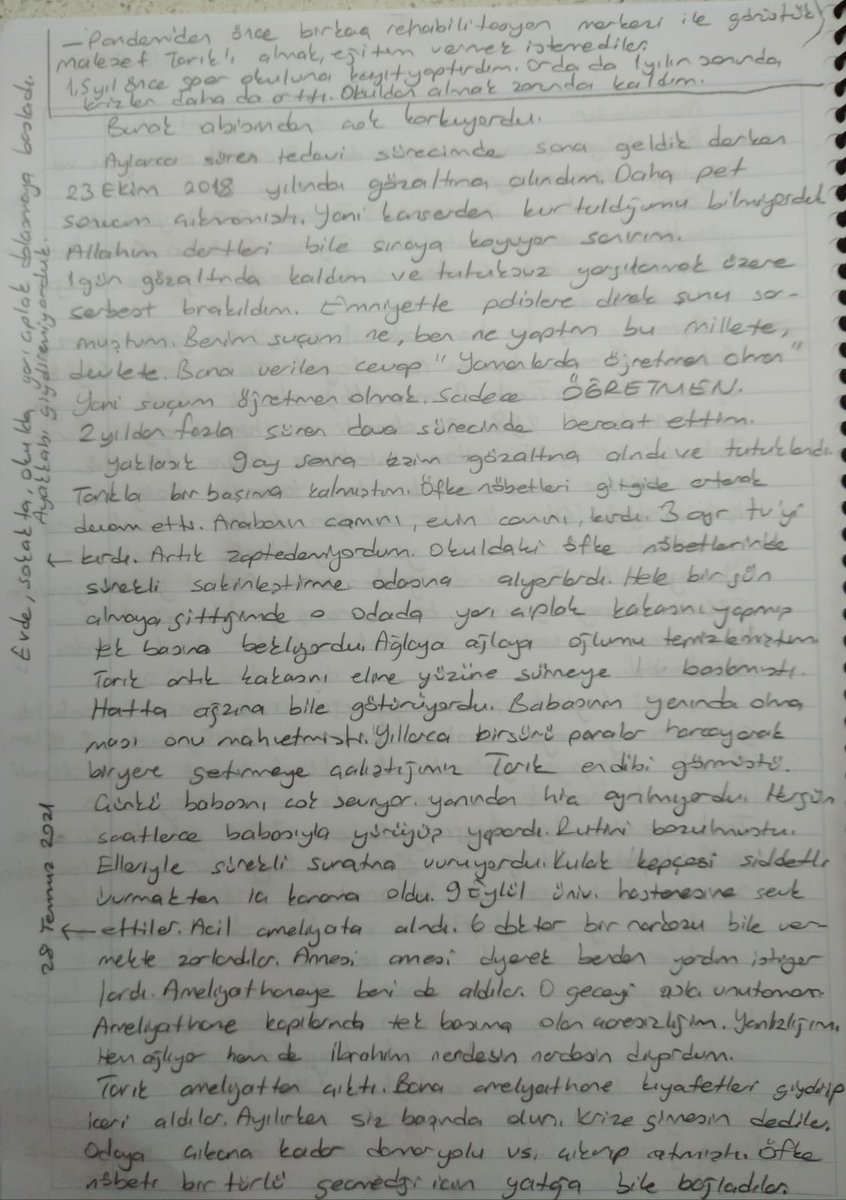 - Pandemiden önce birkaç rehabilitasyon merkezi ile görüştük,
malesef Tarık'ı almak, eğitim vermek istemediler.
1.5 yıl önce özel okuluna kayıt yaptırdım. Orda da 1 yılın sonunda
krizleri daha da arttı. Okuldan almak zorunda kaldım.
Burak abisinden çok korkuyordu.
Aylarca süren tedavi sürecimde sona geldik derken
23 Ekim 2018 yılında gözaltına alındım. Daha pet
sonucum çıkmamıştı. Yani kanserden kurtulduğumu bilmiyorduk
Allahım dertleri bile sıraya koyuyor sanırım.
1 gün gözaltında kaldım ve tutuksuz yargılanmak üzere
serbest bırakıldım. Emniyette polislere direk şunu sor-
muştum. Benim suçum ne, ben ne yaptım bu millete,
devlete. Bana verilen cevap "Yamanlarda öğretmen olman"
Yani suçum öğretmen olmak. Sadece ÖĞRETMEN.
2 yıldan fazla süren dava sürecinde beraat ettim.
Yaklaşık 9 ay sonra eşim gözaltına alındı ve tutuklandı.
Tarıkla bir başıma kalmıştım. Öfke nöbetleri gitgide artarak
devam etti. Arabanın camını, evin camını, kırdı. 3 ayrı tv'yi
← kırdı. Artık zaptedemiyordum. Okuldaki öfke nöbetlerinde
sürekli sakinleştirme odasına alıyorlardı. Hele bir gün
almaya gittiğimde o odada yarı çıplak kakasını yapmış
tek başına bekliyordu. Ağlaya ağlaya oğlumu temizlemiştim
Tarık artık kakasını eline yüzüne sürmeye başlamıştı.
Hatta ağzına bile götürüyordu. Babasının yanında olma
ması onu mahvetmişti. Yıllarca birsürü paralar harcayarak
biryere getirmeye çalıştığımız Tarık endibi görmüştü.
Çünkü babasını çok seviyor. yanından hiç ayrılmıyordu. Hergün
saatlerce babasıyla yürüyüş yapardı. Rutini bozulmuştu.
Elleriyle sürekli suratına vuruyordu. Kulak kepçesi şiddetli
vurmaktan iç kanama oldu. 9 Eylül üniv. hastanesine sevk
← ettiler. Acil ameliyata alındı. 6 doktor bir narkozu bile ver-
mekte zorlandılar. Annesi annesi diyerek benden yardım istiyor
lardı. Ameliyathaneye beni de aldılar. O geceyi asla unutamam.
Ameliyathane kapılarında tek başıma olan çaresizliğim. Yanlızlığım.
Hem ağlıyor hem de İbrahim nerdesin nerdesin diyordum.
Tarık ameliyattan çıktı. Bana ameliyathane kıyafetleri giydirip
içeri aldılar. Ayılırken siz başında olun, krize girmesin dediler.
Odaya çıkana kadar damar yolu vs. çıkarıp atmıştı. Öfke
nöbeti bir türlü geçmediği için yatağa bile bağladılar.
Evde, sokakta, okulda yarı çıplak dolaşmaya başladı.
Ayakkabı giydiremiyorduk.
28 Temmuz 2021